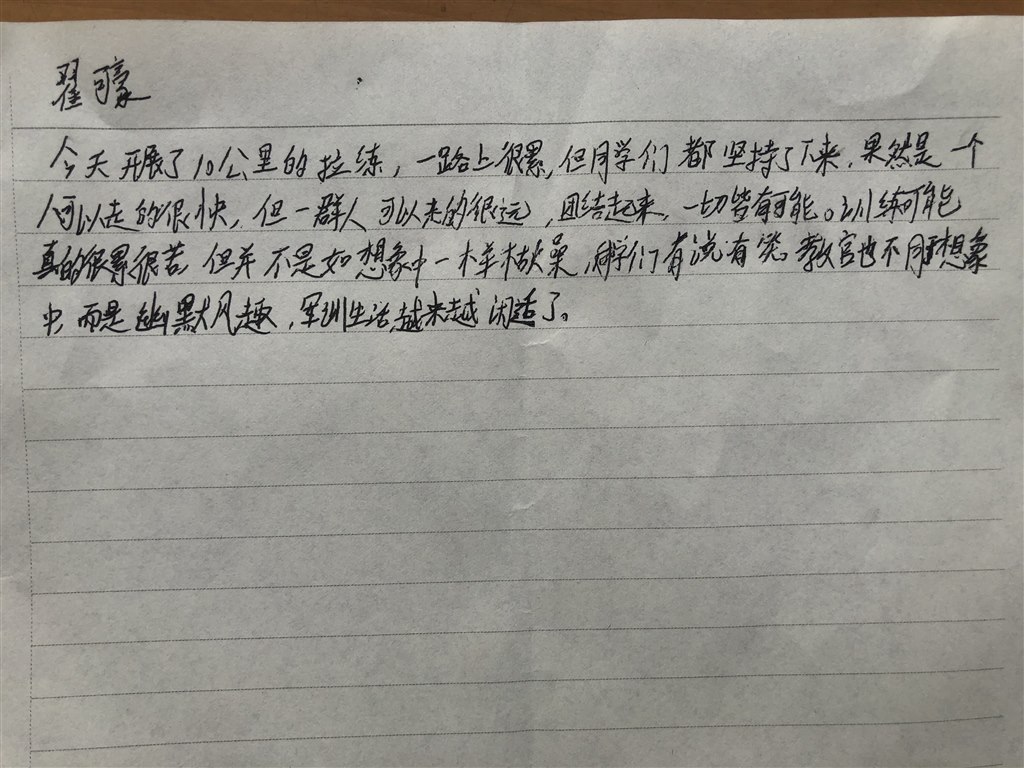 翟可豪
今天开展了10公里的拉练，一路上很累，但同学们都坚持了下来，果然是一个
人可以走的很快，但一群人可以走的很远，团结起来，一切皆有可能。训练可能
真的很累很苦，但并不是如想象中一样枯燥，同学们有说有笑。教官也不同想象
中，而是幽默风趣，军训生活越来越闲适了。